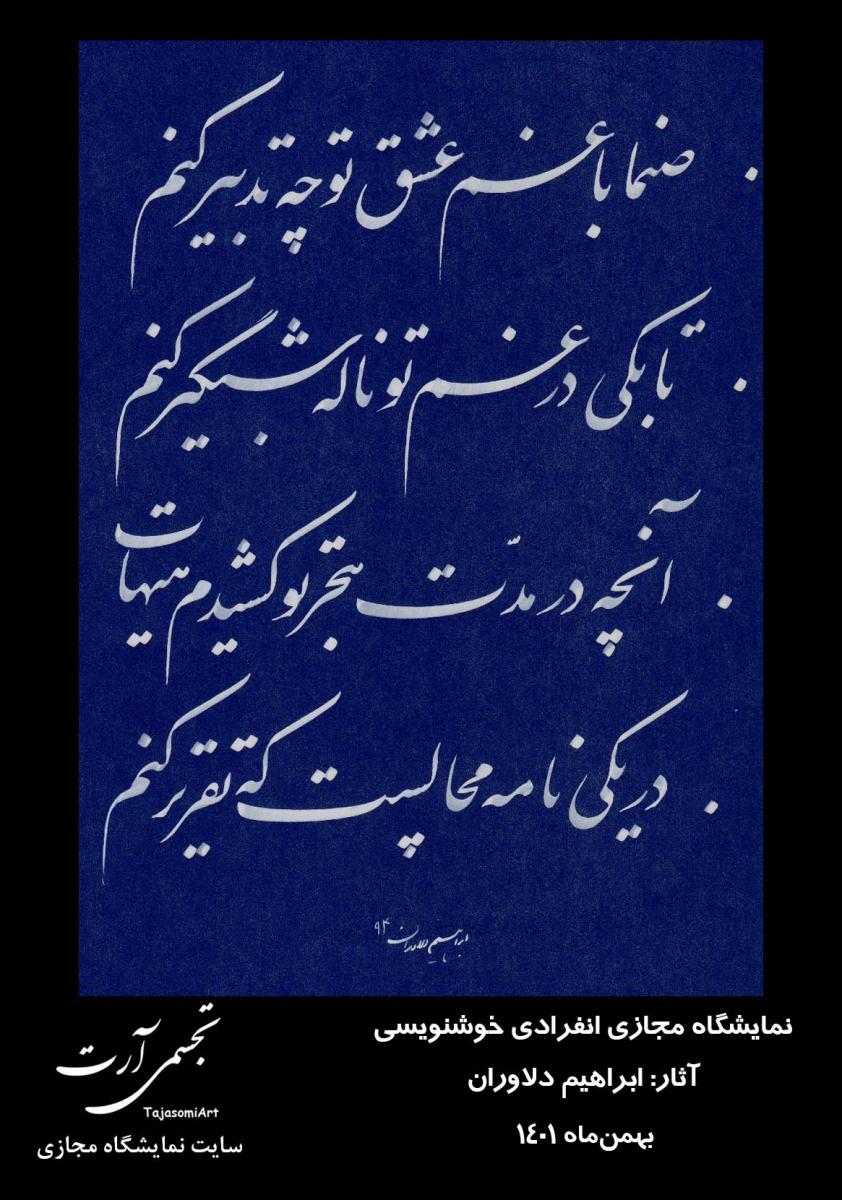 صنما با غم عشق تو چه تدبیر کنم
تا بکی در غم تو ناله شبگیر کنم
آنچه در مدّت هجر تو کشیدم هیهات
در یکی نامه محالست که تقریر کنم
ابراهیم دلاوران ۹۴
نمایشگاه مجازی انفرادی خوشنویسی
آثار: ابراهیم دلاوران
بهمن‌ماه ۱٤۰۱
تجسمی آرت
TajasomiArt
سایت نمایشگاه مجازی